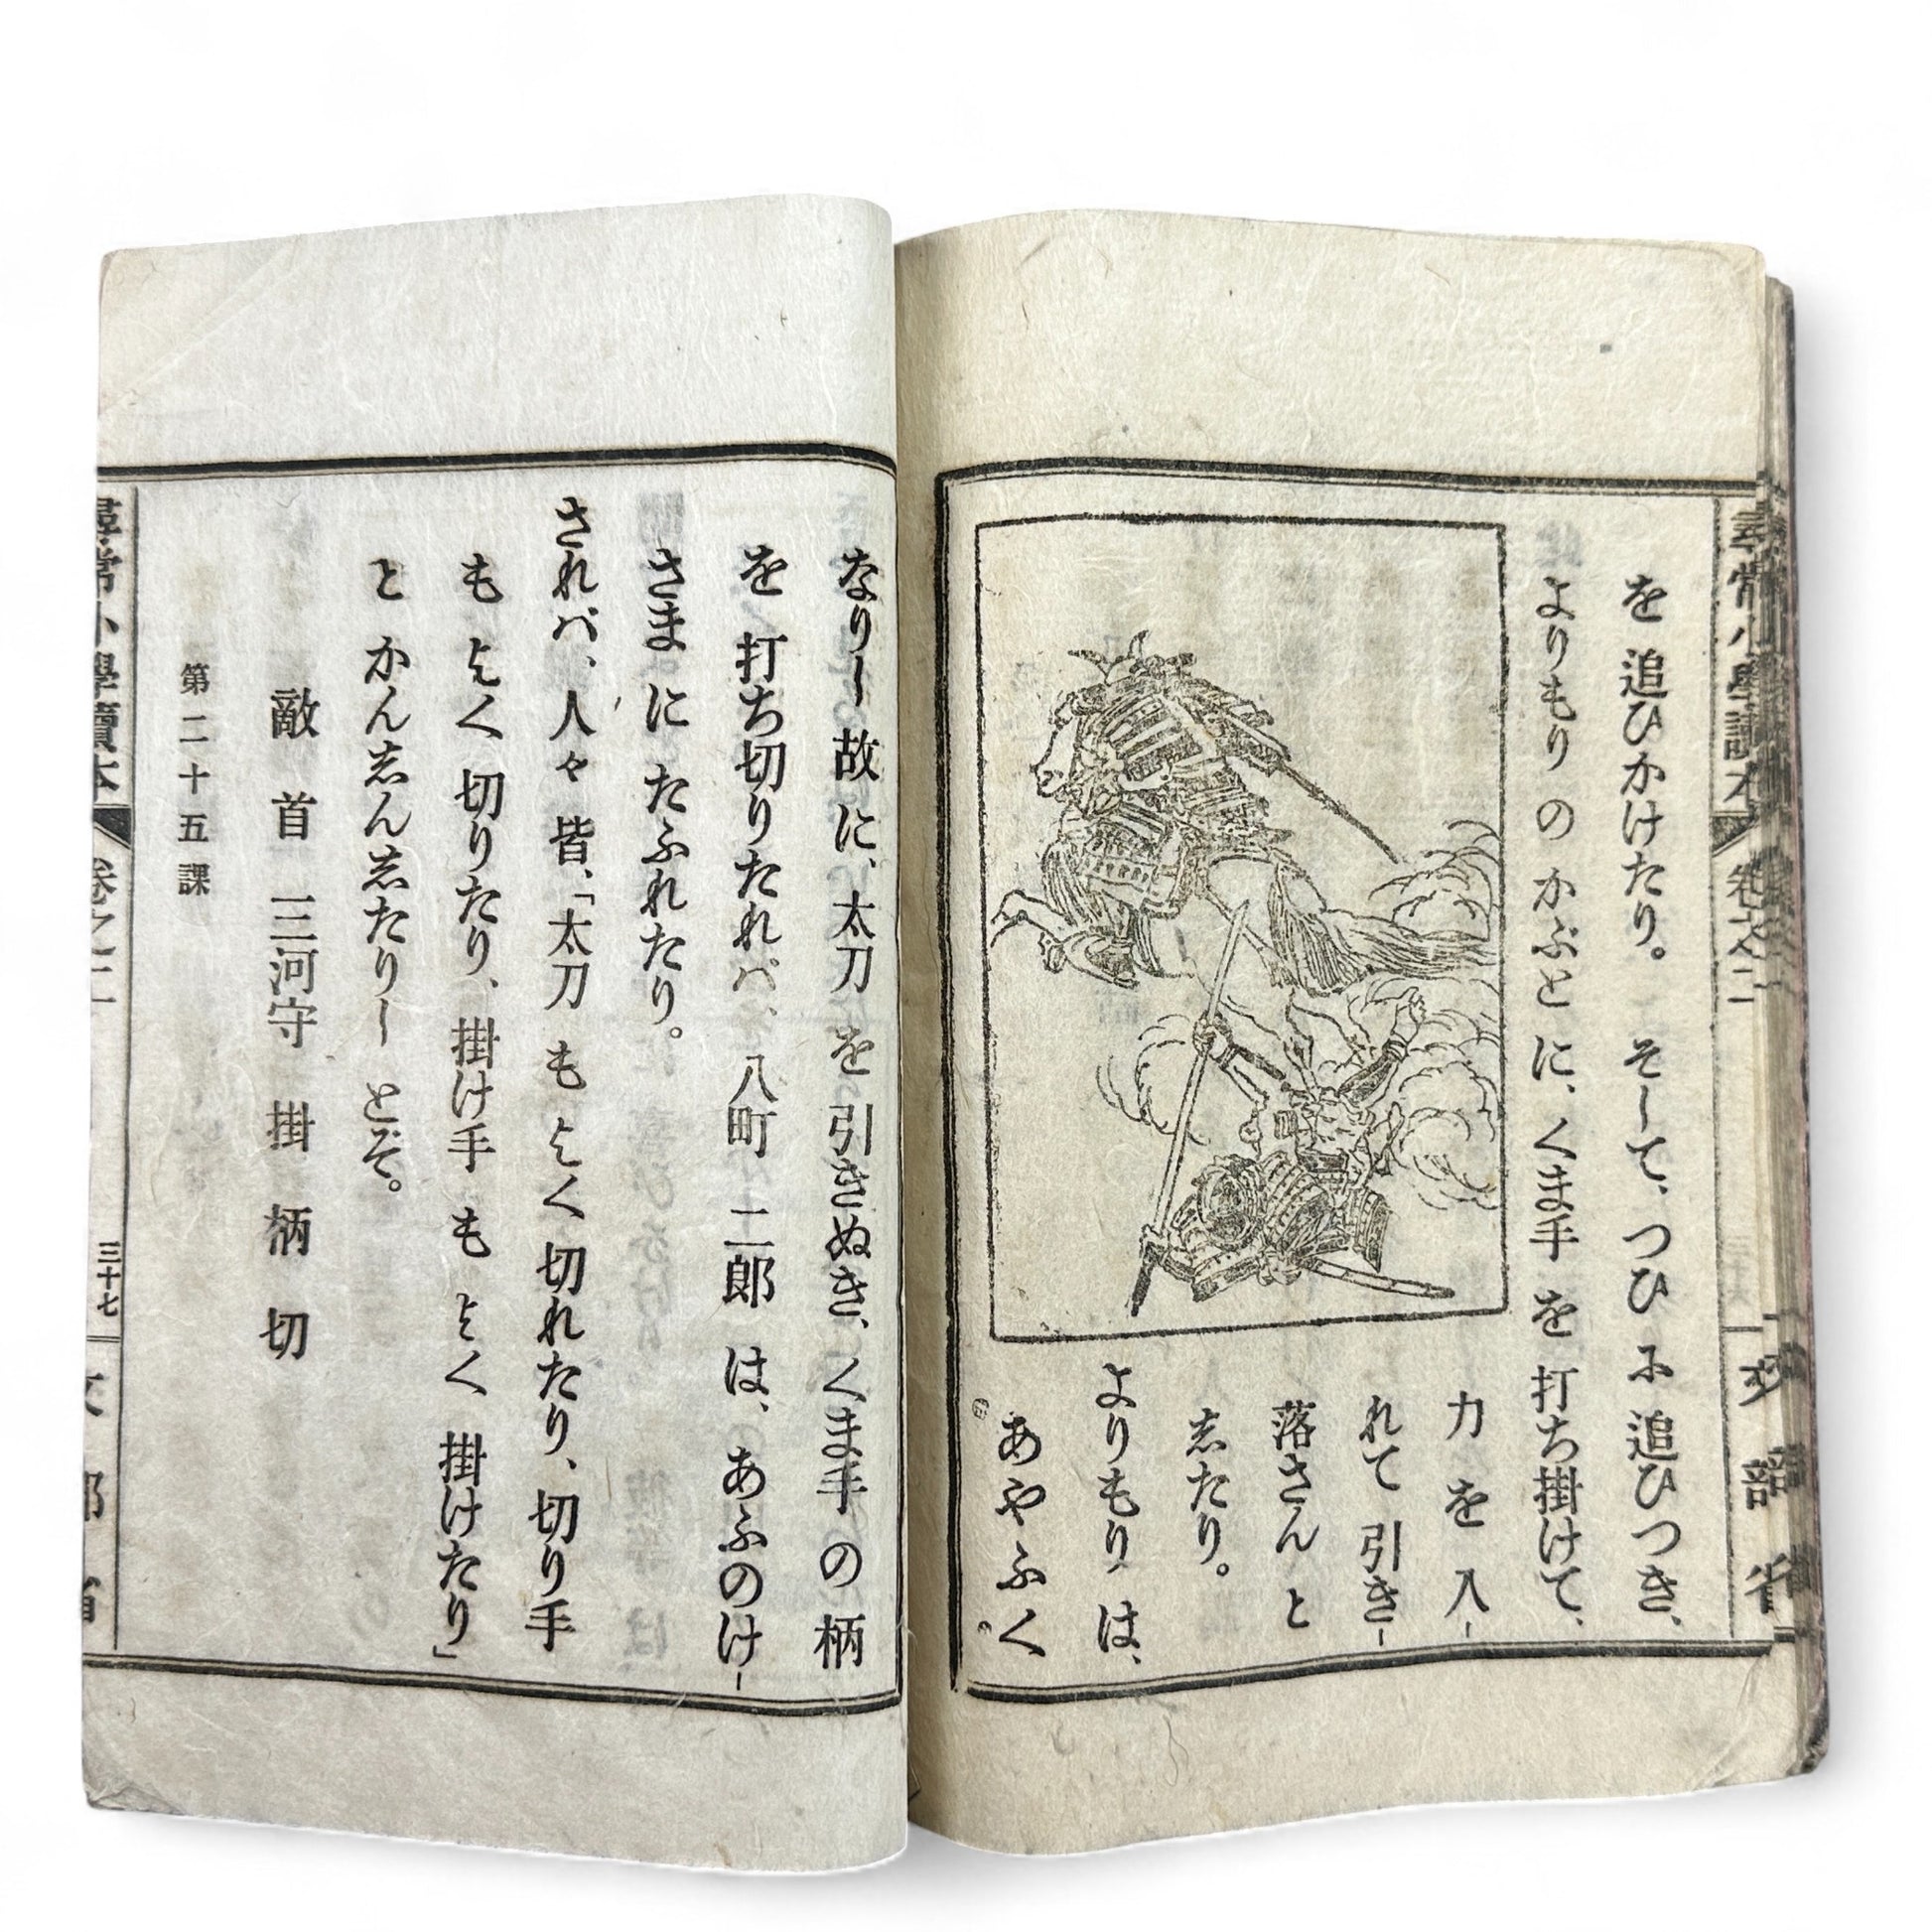 尋常小學讀本 卷之二 文部省
を 追ひかけたり。 そして、つひ に 追ひつき、
よりもり の かぶと に、くま手 を 打ち掛けて、
力 を 入-
れて 引き-
落さん と
志たり。
よりもり は、
あやふく
なりし 故 に、太刀 を 引きぬき、くま手 の 柄
を 打ち切りたれバ、八町 二郎 は、あふのけ-
さま に たふれたり。
されバ、人々 皆、「太刀 も よく 切れたり、切り手
も よく 切りたり、掛け手 も よく 掛けたり」
と かん志ん志たりし とぞ。
敵 首 三河守 掛 柄 切
第二十五課
尋常小學讀本 卷之二 三十七 文部省